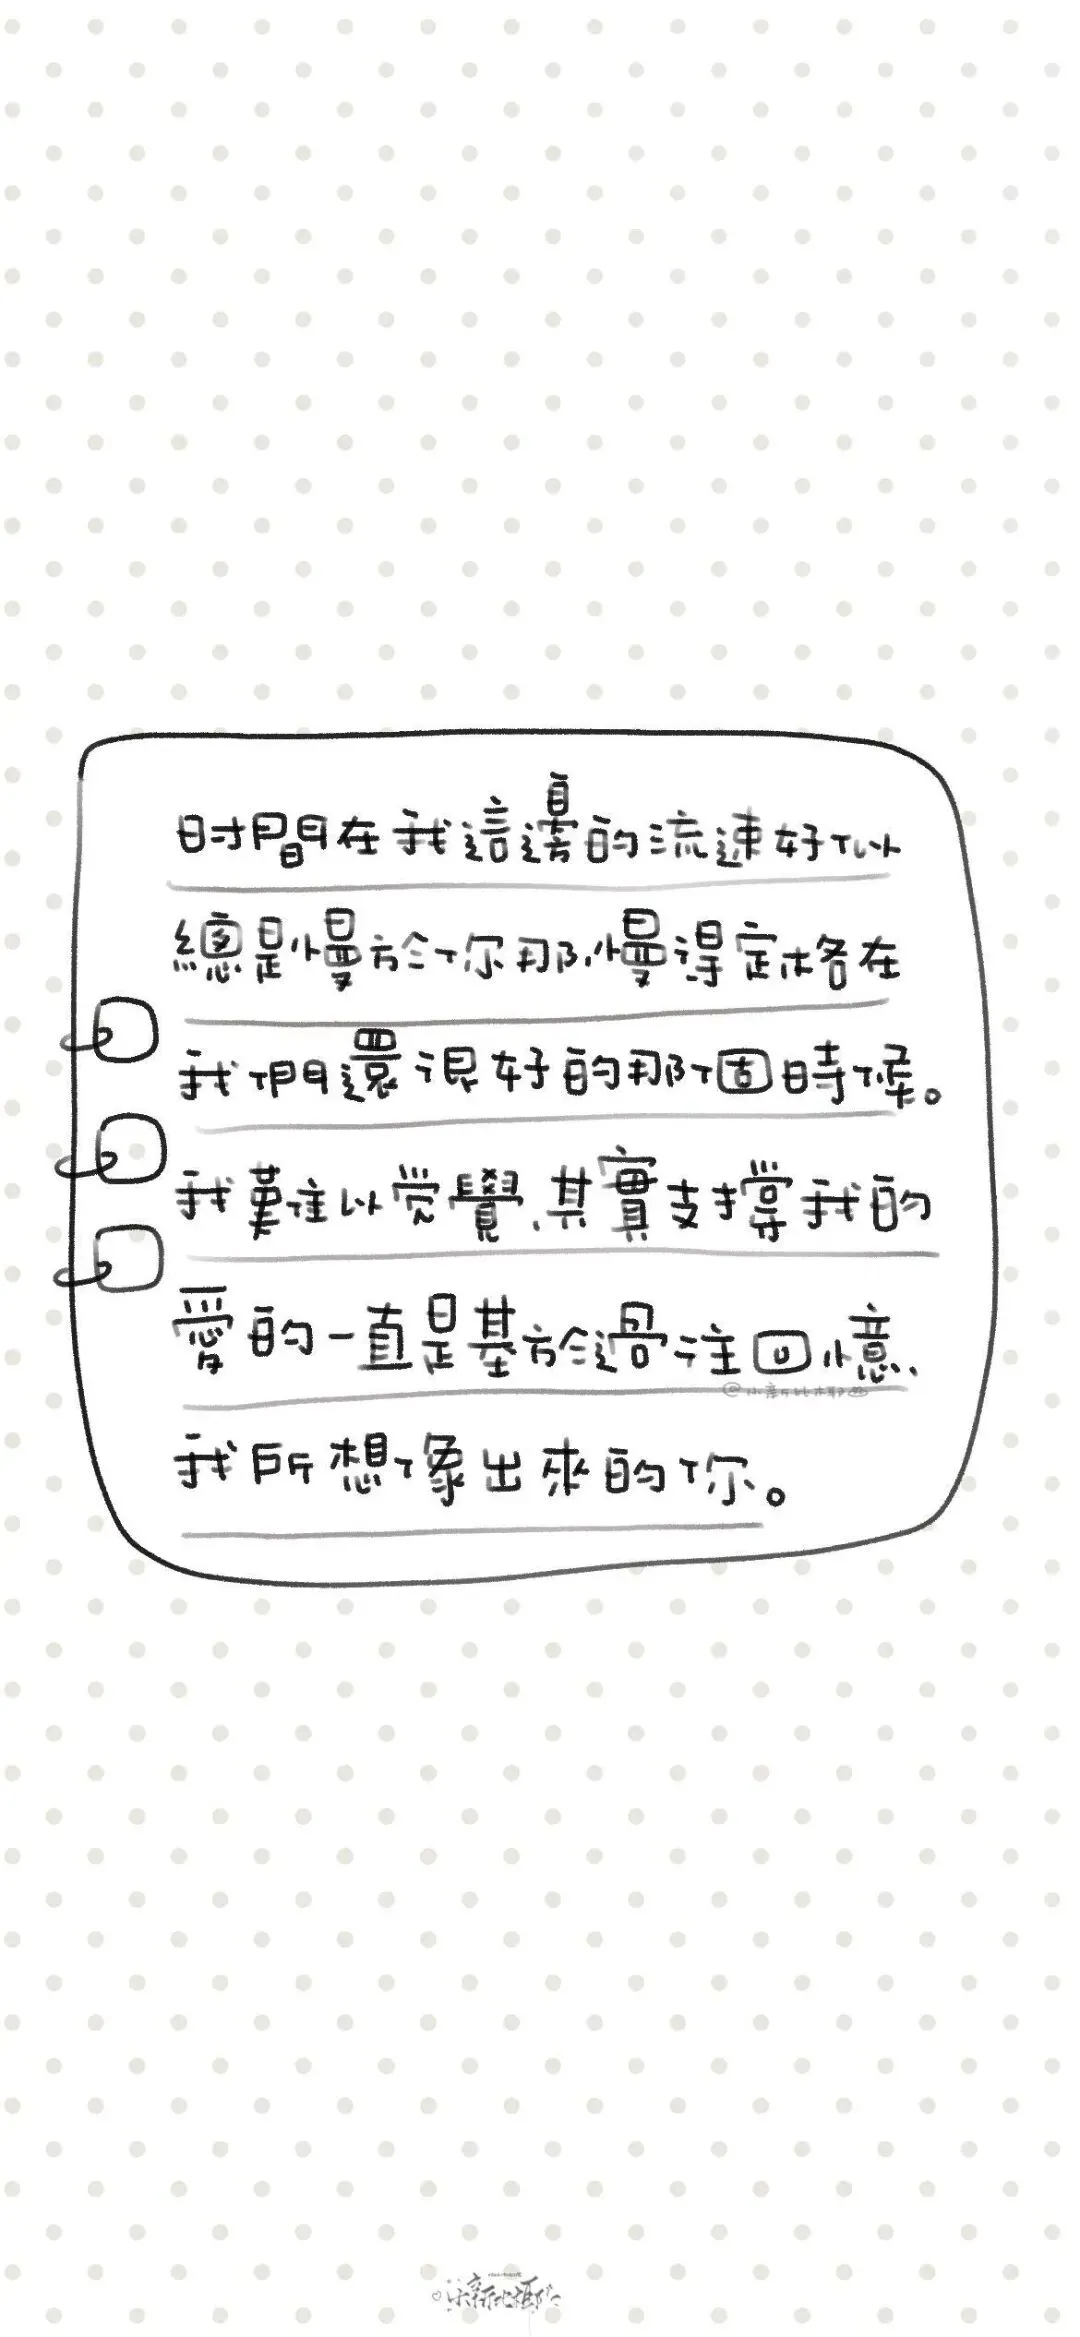 时間在我這邊的流速好似
總是慢於你那,慢得定格在
我們還很好的那個時候。
我難以觉覺,其實支撐我的
愛的一直是基於過往回憶,
@小新比椰
我所想像出來的你。
小新比椰